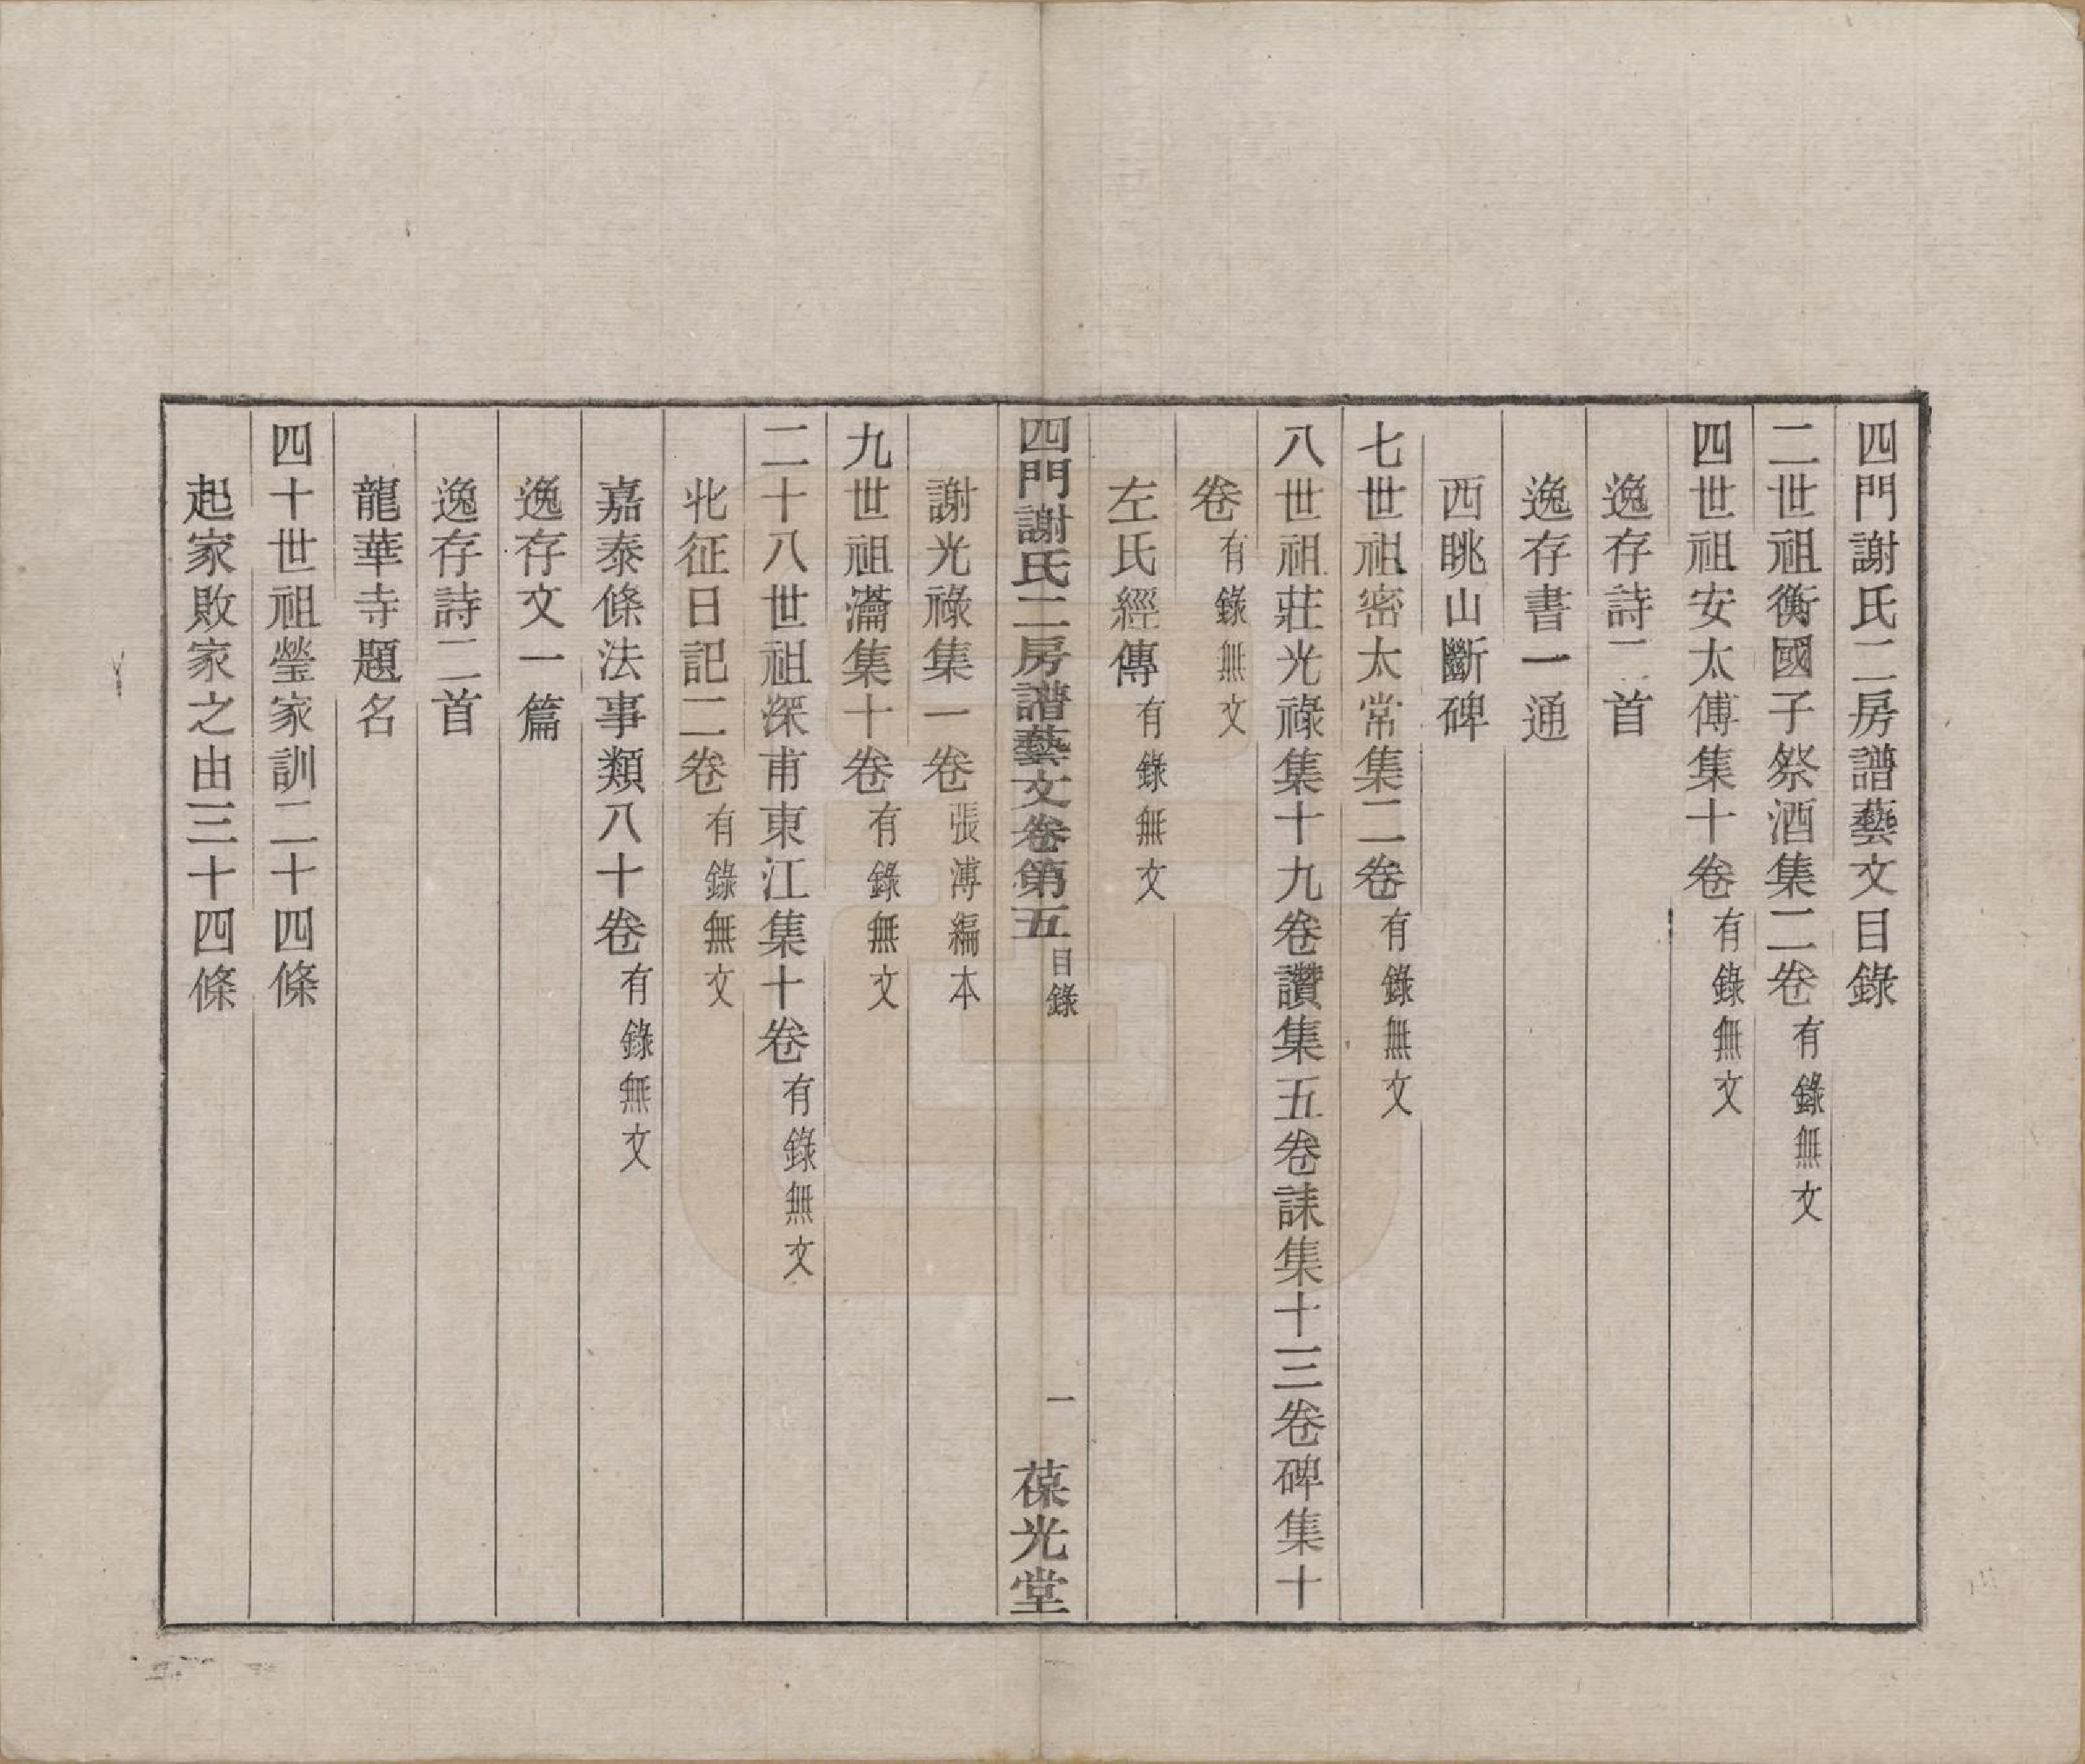 四門謝氏二房譜藝文目錄
二世祖衡國子祭酒集二卷有錄無文
四世祖安太傅集十卷有錄無文
逸存詩二首
逸存書一通
西眺山斷碑
七世祖密太常集二卷有錄無文
八世祖莊光祿集十九卷讚集五卷誄集十三卷碑集十
卷有錄無文
左氏經傳有錄無文
四門謝氏二房譜藝文卷第五目錄 一 葆光堂
謝光祿集一卷張溥編本
九世祖瀹集十卷有錄無文
二十八世祖深甫東江集十卷有錄無文
北征日記二卷有錄無文
嘉泰條法事類八十卷有錄無文
逸存文一篇
逸存詩二首
龍華寺題名
四十世祖瑩家訓二十四條
起家敗家之由三十四條